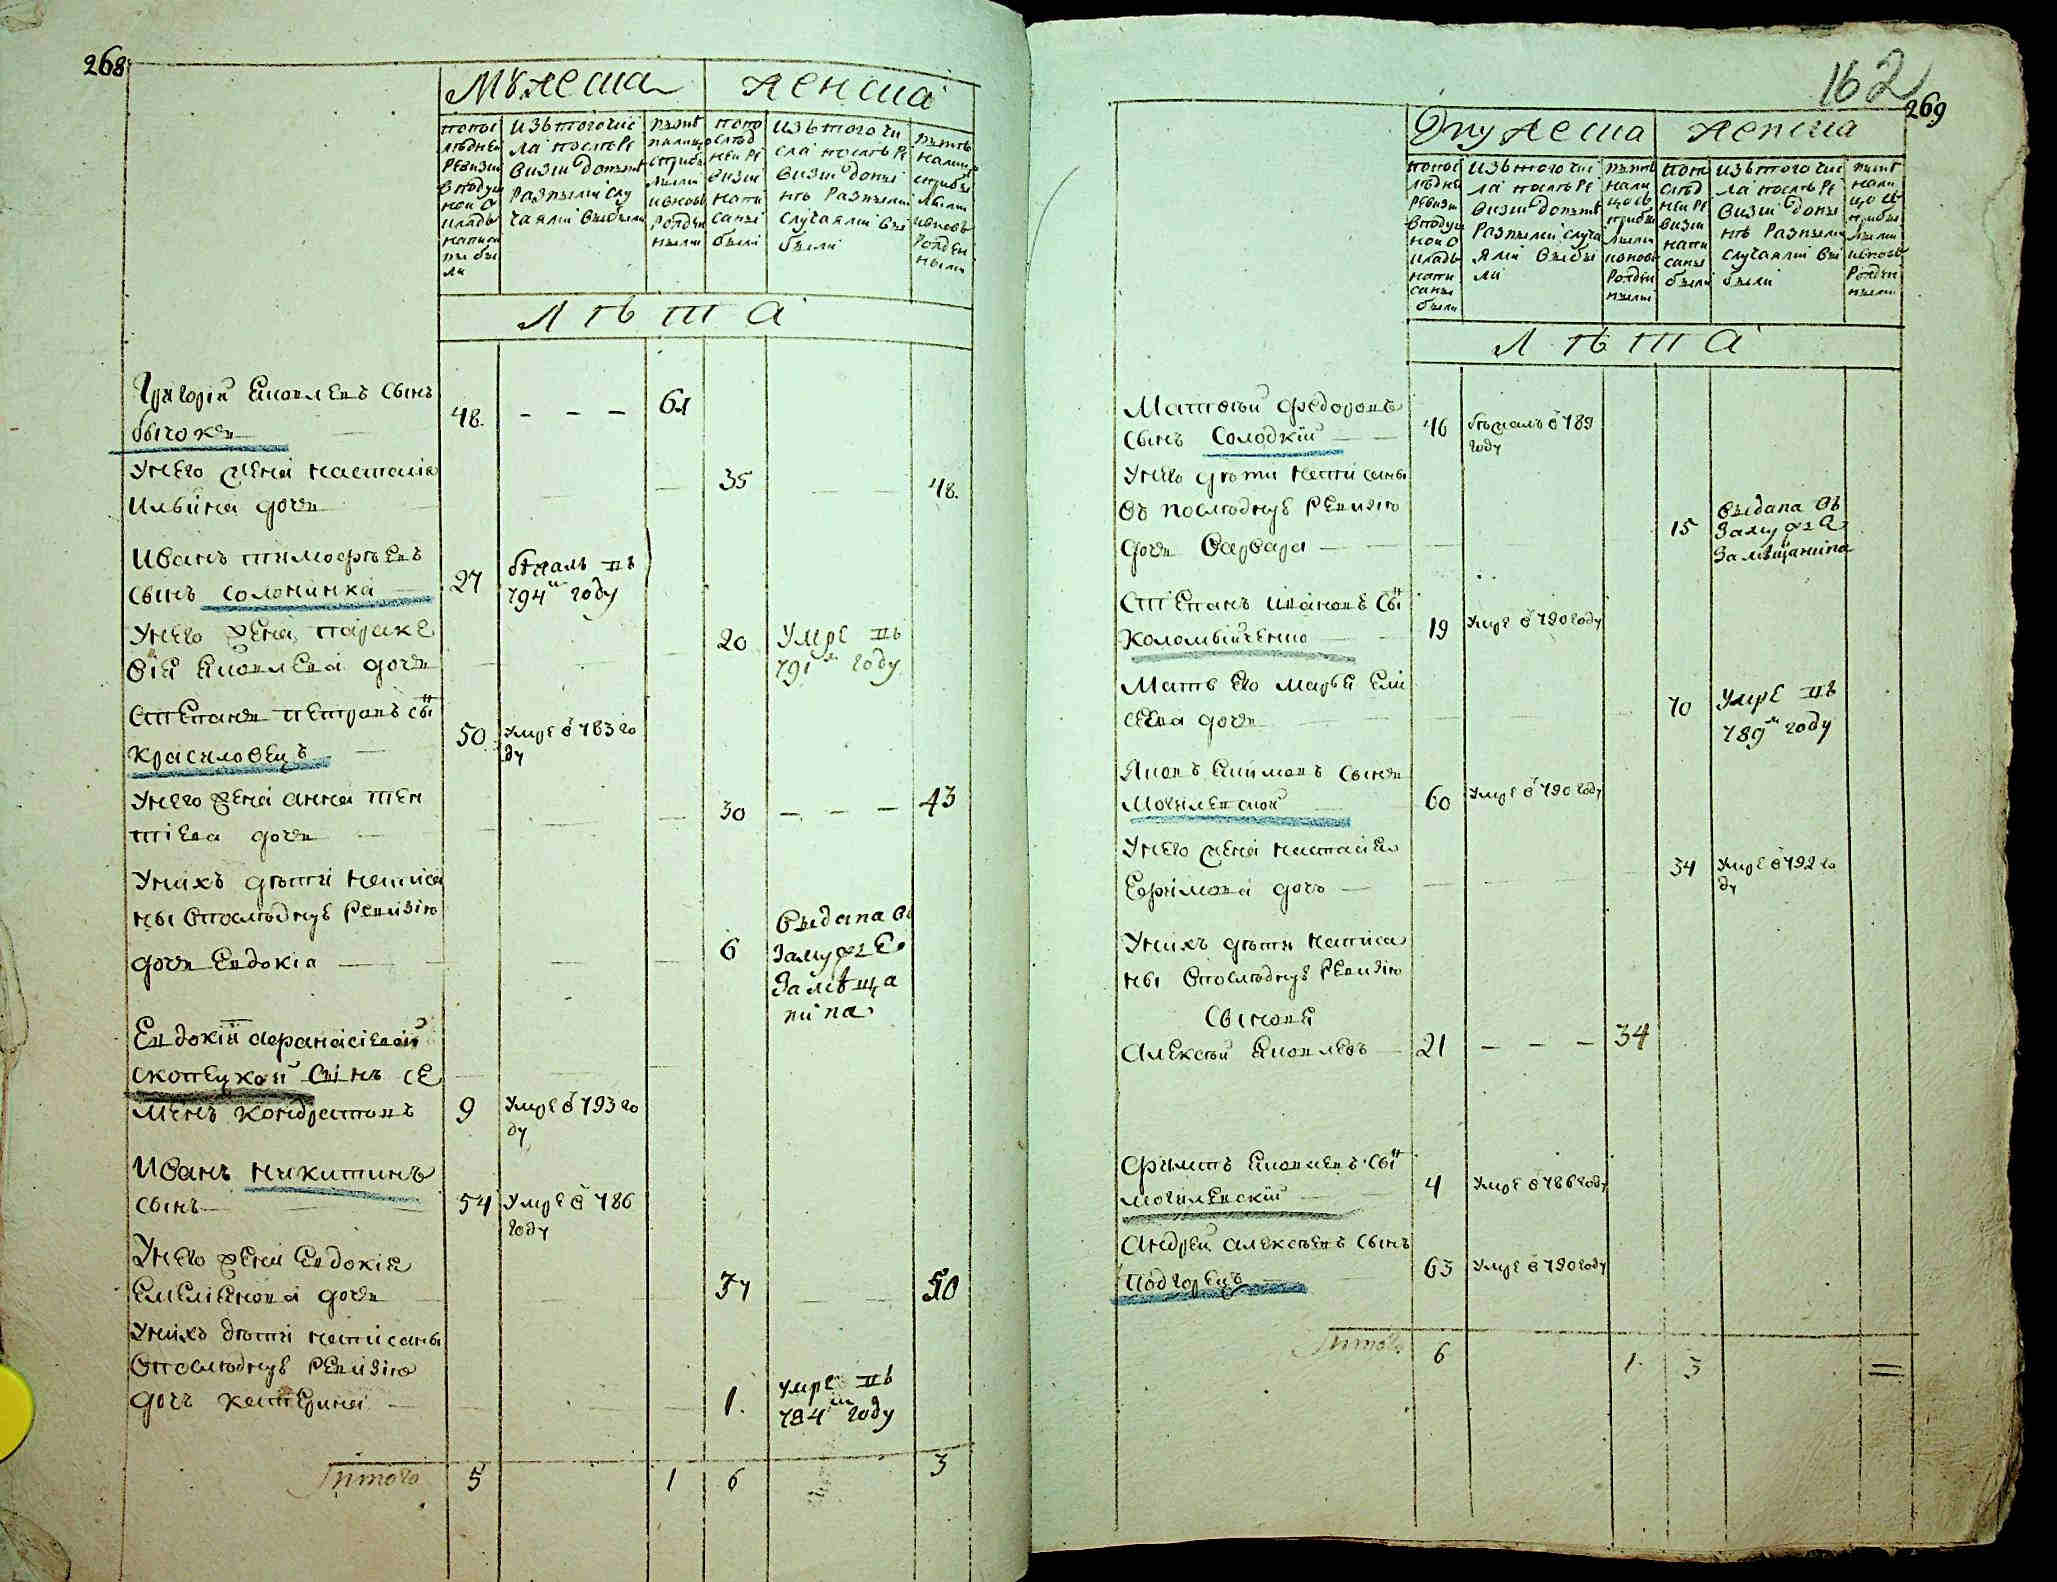 268
Мужеска
женска
попос
лѣдней
ревизіи
в подуш
ной о
кладъ
написа
ны бы
ли
изъ того чис
ла послѣ ре
визіи донынѣ
разными слу
чаями выбыли
нынѣ
налицо
с прибы
лыми
и вновь
рожден
ными
попо
слѣд
ней ре
визіи
напи
саны
были
изъ того чи
сла послѣ ре
визіи доны
нѣ разными
случаями вы
были
нынѣ
налицо
с прибы
лыми
и вновь
рожден
ными
Л ѣ т а
Григорій Яковлевъ сынъ
бычокъ
48. - - - 61
У него жена настасія
Ильина дочь
35 48.
Иванъ тимофѣевъ
сынъ солонинка
27 бѣжалъ въ
794м году
У него жена параске
віа Яковлева дочь
20 умре въ
791м году
Степанъ петровъ сы
красиловецъ
50 умре в 783 го
ду
У него жена анна тен
тіева дочь
30 - - - 43
У нихъ дѣти написа
ны в последнуе ревизію
дочь Евдокіа
6 выдана в
замуже
за мѣща
нина
Евдокій афанасіевой
скопецкой сынъ се
менъ кондратовъ
9 умре в 793 го
ду
Иванъ никитинъ
сынъ
54 умре в 786
году
У него жена Евдокіа
Емеліанова дочь
37 50
У нихъ дѣти написаны
в последнуе ревизію
дочъ катерина
1. умре въ
784м году
Итого 5 1 6 3
162
269
Мужеска
женска
попос
лѣдне
ревизіи
в подуш
ной о
кладъ
напи
саны
были
изъ того чис
ла послѣ ре
визіи донынѣ
разными случа
ями выбы
ли
нынѣ
нали
цо съ
прибы
лыми
и вновь
рожден
ными
попо
слѣд
ней ре
визіи
напи
саны
были
изъ того чис
ла послѣ ре
визіи доны
нѣ разными
случаями вы
были
нынѣ
нали
цо съ
прибы
лыми
и вновь
рожден
ными
Л ѣ т а
Матвѣй Федоровъ
сынъ Солодкій
46 бѣжалъ в 789
году
У него дѣти написаны
въ последнуе ревизію
дочь Варвара
15 выдана въ
замуже
за мѣщанина
Степанъ Ивановъ сы
Коломыйченко
19 умре в 790 году
Мать его Марья Ели
сеева дочь
70 умре въ
789м году
Яковъ Екимовъ сынъ
Могилевской
60 умре в 790 году
У него жена настасіа
Ефимова дочъ
34 умре в 792 го
ду
У нихъ дѣти написа
ны в последнуе ревизію
сыновя
Алексѣй Яковлевъ 21 - - - 34
Филипъ Яковлевъ сы
могилевскій
4 умре в 786 году
Андрей алексѣевъ сынъ
Подгорецъ
63 умре в 790 году
Итого 6 1. 3 =